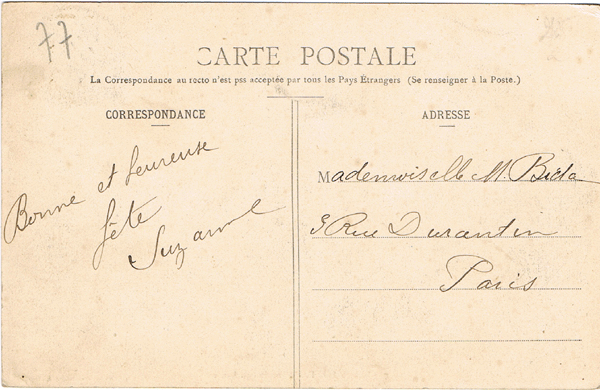 77
CARTE POSTALE
La Correspondance au recto n'est pss acceptée par tous les Pays Étrangers (Se renseigner à la Poste.)
CORRESPONDANCE
Bonne et heureuse
fête
Suzanne
ADRESSE
Mademoiselle M.
Rue Durantin
Paris